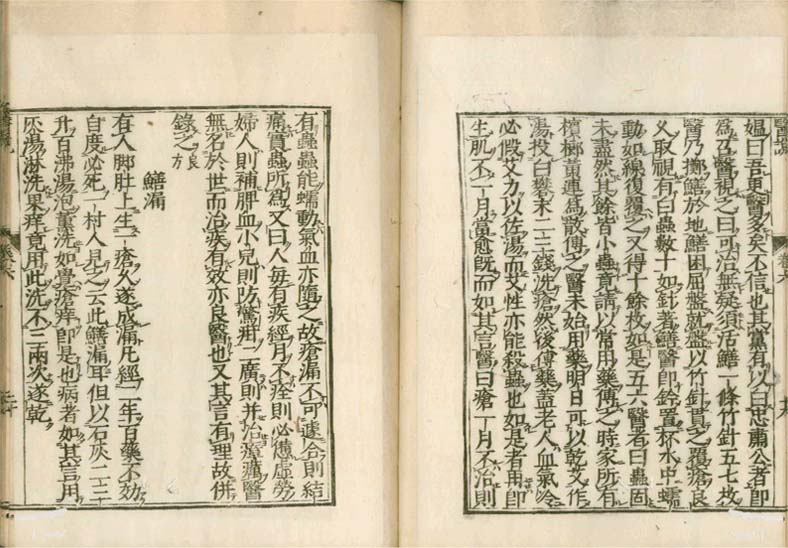 媼曰吾更醫多矣不信也其黨有以白忠肅公者即
爲召醫視之曰可治無疑須活鱔一條竹針五七枚
醫乃擲鱔於地鱔困屈盤就盤以竹針貫之覆瘡良
久取視有白蟲數十如針著鱔醫即令置杯水中蠕
動如線復覆之又得十餘枚如是五六醫者曰蟲固
未盡然其餘皆小蟲竟請以常用藥傅之時家所有
檳榔黄連爲散傅之醫未始用藥明日可以乾艾作
湯投白礬末二三錢洗瘡然後傅藥蓋老人血氣冷
必假艾力以佐湯而艾性亦能殺蟲也如是者用即
生肌不一月當愈既而如其言醫曰瘡一月不治則
有蟲蟲能蠕動氣血亦隨之故瘡漏不可遽合則結
痛實蟲所爲又曰人毎有疾經月不痊則必憊虚勞
婦人則補脾血小兒則防驚疳二廣則并治瘴癘醫
無名於世而治疾有效亦良醫也又其言有理故併
錄之
鱔漏
有人脚肚上生一瘡久遂成漏凡經二年百藥不效
自度必死一村人見之云此鱔漏耳但以石灰二三
升百沸湯泡薫洗如覺瘡痒即是也病者如其言用
灰湯淋洗果痒竟用此洗不三兩次遂乾